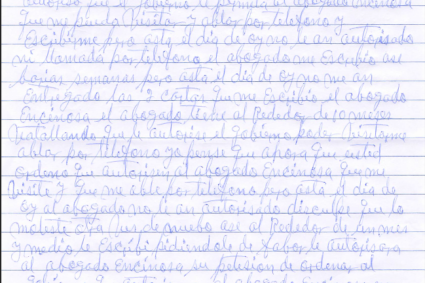 autoriso que el gobierno le permita al abogado Encinosa
que me pueda visitar y ablar por telefono y
Escribirme pero asta el dia de oy no le an autorisado
ni llamada por telefono el abogado me Escribio ase
barias semanas pero asta el dia de oy no me an
Entregado las 2 cartas que me Escribio el abogado
Encinosa el abogado tiene al Rededor de 10 meses
batallando que le autorise el gobierno poder visitarme
ablar por telefono yo pense que ahora que usted
ordeno que autorisen al abogado Encinosa que me
visite y que me able por telefono pero asta el dia de
oy al abogado no le an autorisado disculpe que lo
moleste otra bes de nuebo ase al Rededor de un mes
y medio le Escribi pidiendole de fabor le autorisara
al abogado Encinosa su petision de ordenar al